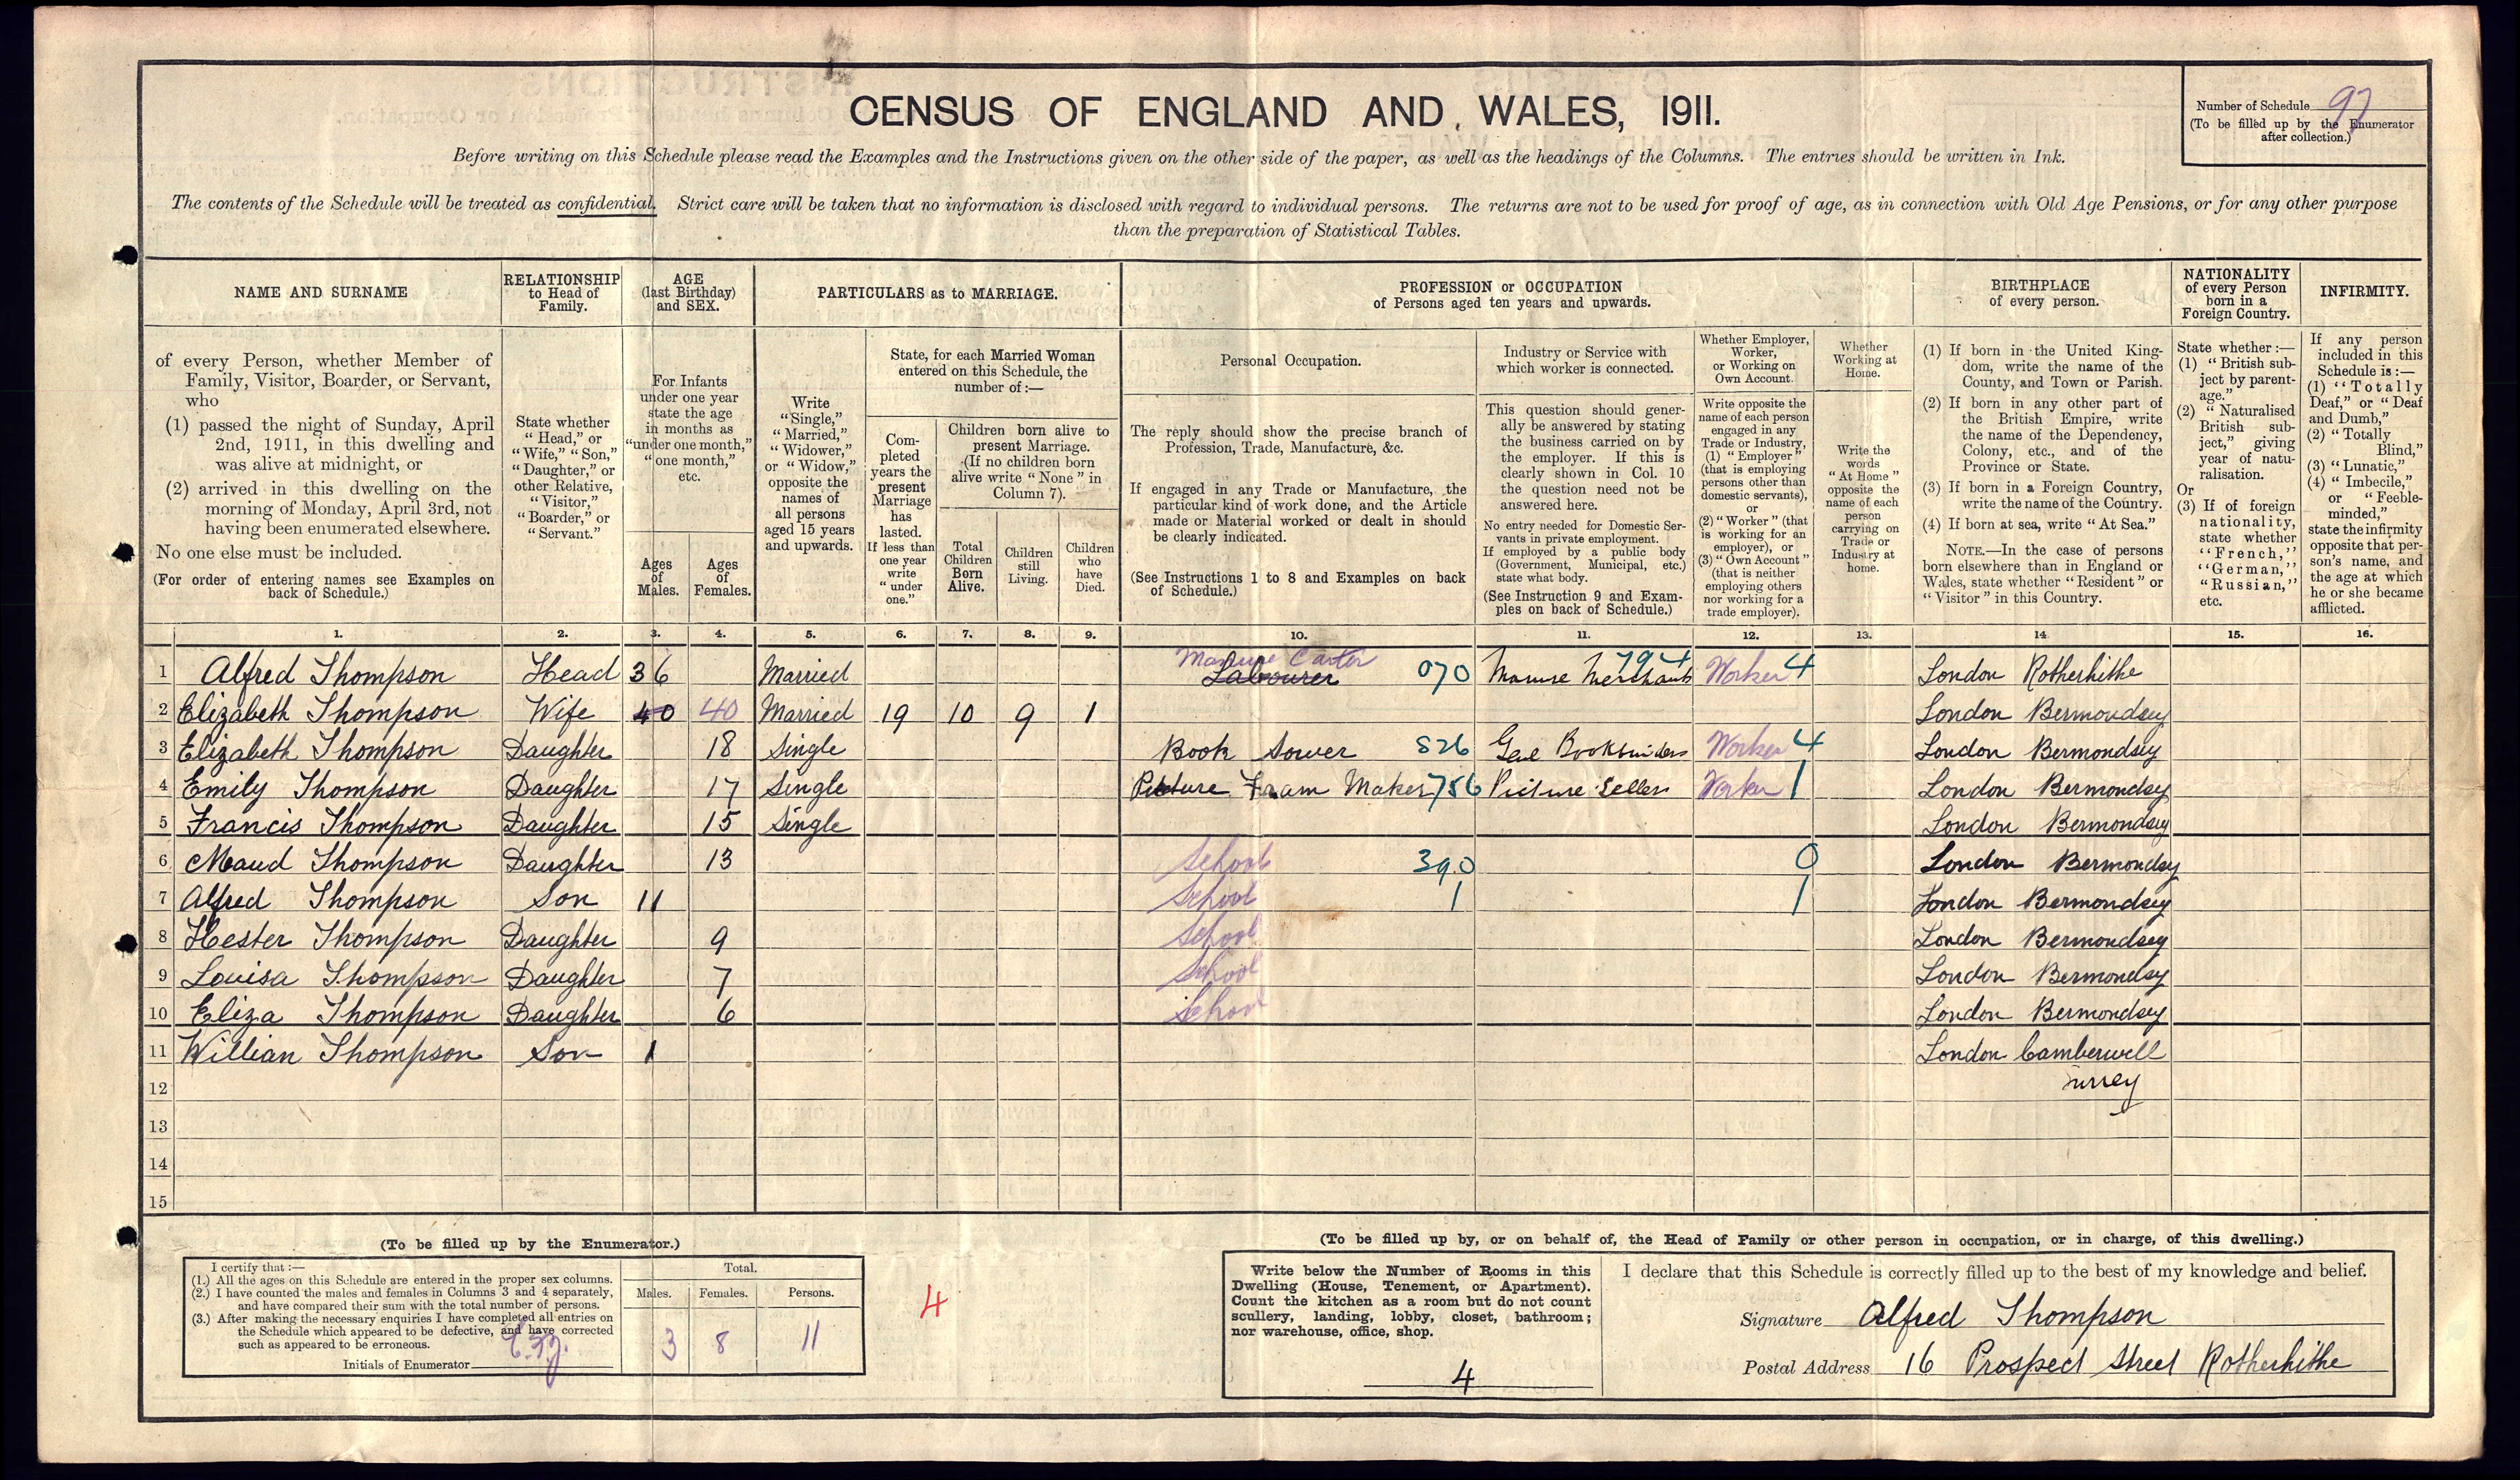 CENSUS OF ENGLAND AND WALES, 1911.
Number of Schedule 97
(To be filled up by the Enumerator
after collection.)
Before writing on this Schedule please read the Examples and the Instructions given on the other side of the paper, as well as the headings of the Columns. The entries should be written in Ink.
The contents of the Schedule will be treated as confidential. Strict care will be taken that no information is disclosed with regard to individual persons. The returns are not to be used for proof of age, as in connection with Old Age Pensions, or for any other purpose
than the preparation of Statistical Tables.
NAME AND SURNAME
of every Person, whether Member of
Family, Visitor, Boarder, or Servant,
who
(1) passed the night of Sunday, April
2nd, 1911, in this dwelling and
was alive at midnight, or
(2) arrived in this dwelling on the
morning of Monday, April 3rd, not
having been enumerated elsewhere.
No one else must be included.
(For order of entering names see Examples on
back of Schedule.)
RELATIONSHIP
to Head of
Family.
State whether
"Head," or
"Wife," "Son,"
"Daughter," or
other Relative,
"Visitor,"
"Boarder," or
"Servant."
AGE
(last Birthday)
and SEX.
For Infants
under one year
state the age
in months as
"under one month,"
"one month,"
etc.
Ages
of
Males.
Ages
of
Females.
PARTICULARS as to MARRIAGE.
Write
"Single,"
"Married,"
"Widower,"
or "Widow,"
opposite the
names of
all persons
aged 15 years
and upwards.
State, for each Married Woman
entered on this Schedule, the
number of:—
Com-
pleted
years the
present
Marriage
has
lasted.
If less than
one year
write
"under
one."
Children born alive to
present Marriage.
(If no children born
alive write "None" in
Column 7).
Total
Children
Born
Alive.
Children
still
Living.
Children
who
have
Died.
PROFESSION or OCCUPATION
of Persons aged ten years and upwards.
Personal Occupation.
The reply should show the precise branch of
Profession, Trade, Manufacture, &c.
If engaged in any Trade or Manufacture, the
particular kind of work done, and the Article
made or Material worked or dealt in should
be clearly indicated.
(See Instructions 1 to 8 and Examples on back
of Schedule.)
Industry or Service with
which worker is connected.
This question should gener-
ally be answered by stating
the business carried on by
the employer. If this is
clearly shown in Col. 10
the question need not be
answered here.
No entry needed for Domestic Ser-
vants in private employment.
If employed by a public body
(Government, Municipal, etc.)
state what body.
(See Instruction 9 and Exam-
ples on back of Schedule.)
Whether Employer,
Worker,
or Working on
Own Account.
Write opposite the
name of each person
engaged in any
Trade or Industry,
(1) "Employer"
(that is employing
persons other than
domestic servants),
or
(2) "Worker" (that
is working for an
employer), or
(3) "Own Account"
(that is neither
employing others
nor working for a
trade employer).
Whether
Working at
Home.
Write the
words
"At Home"
opposite the
name of each
person
carrying on
Trade or
Industry at
home.
BIRTHPLACE
of every person.
(1) If born in the United King-
dom, write the name of the
County, and Town or Parish.
(2) If born in any other part of
the British Empire, write
the name of the Dependency,
Colony, etc., and of the
Province or State.
(3) If born in a Foreign Country,
write the name of the Country.
(4) If born at sea, write "At Sea."
NOTE.—In the case of persons
born elsewhere than in England or
Wales, state whether "Resident" or
"Visitor" in this Country.
NATIONALITY
of every Person
born in a
Foreign Country.
State whether:—
(1) "British sub-
ject by parent-
age."
(2) "Naturalised
British sub-
ject," giving
year of natu-
ralisation.
Or
(3) If of foreign
nationality,
state whether
"French,"
"German,"
"Russian,"
etc.
INFIRMITY.
If any person
included in this
Schedule is:—
(1) "Totally
Deaf," or "Deaf
and Dumb,"
(2) "Totally
Blind,"
(3) "Lunatic,"
(4) "Imbecile,"
or "Feeble-
minded,"
state the infirmity
opposite that per-
son's name, and
the age at which
he or she became
afflicted.
1. 2. 3. 4. 5. 6. 7. 8. 9. 10. 11. 12. 13. 14 15. 16.
Manure Carter 794
1 Alfred Thompson Head 36 Married Labourer 070 Manure Merchants Worker 4 London Rotherhithe
2 Elizabeth Thompson Wife 40 40 Married 19 10 9 1 London Bermondsey
3 Elizabeth Thompson Daughter 18 Single Book Sower 526 Bookbinders Worker 4 London Bermondsey
4 Emily Thompson Daughter 17 Single Picture Fram Maker 756 Picture Sellers Worker 1 London Bermondsey
5 Francis Thompson Daughter 15 Single London Bermondsey
6 Maud Thompson Daughter 13 School 390 0 London Bermondsey
7 Alfred Thompson Son 11 School 1 1 London Bermondsey
8 Hester Thompson Daughter 9 School London Bermondsey
9 Louisa Thompson Daughter 7 School London Bermondsey
10 Eliza Thompson Daughter 6 School London Bermondsey
11 Willian Thompson Son 1 London Camberwell
12 Surrey
13
14
15
(To be filled up by the Enumerator.)
I certify that:—
(1.) All the ages on this Schedule are entered in the proper sex columns.
(2.) I have counted the males and females in Columns 3 and 4 separately,
and have compared their sum with the total number of persons.
(3.) After making the necessary enquiries I have completed all entries on
the Schedule which appeared to be defective, and have corrected
such as appeared to be erroneous.
Initials of Enumerator
Total.
Males. Females. Persons.
3 8 11
4
(To be filled up by, or on behalf of, the Head of Family or other person in occupation, or in charge, of this dwelling.)
Write below the Number of Rooms in this
Dwelling (House, Tenement, or Apartment).
Count the kitchen as a room but do not count
scullery, landing, lobby, closet, bathroom;
nor warehouse, office, shop.
4
I declare that this Schedule is correctly filled up to the best of my knowledge and belief.
Signature Alfred Thompson
Postal Address 16 Prospect Street Rotherhithe